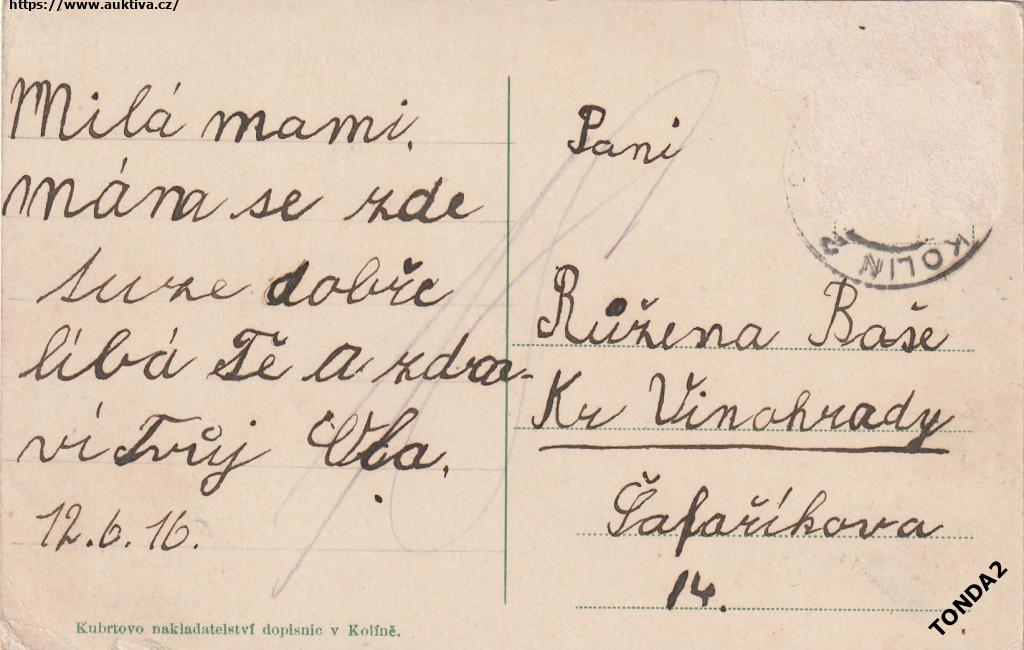 https://www.auktiva.cz/
Milá mami,
mám se zde
tuze dobře
líbá Tě a zdra-
ví Tvůj
12.6.16.
Kubrtovo nakladatelství dopisnic v Kolíně.
KOLIN 2
Paní
Růžena Baše
Kr Vinohrady
Šafaříkova
14.
TONDA2